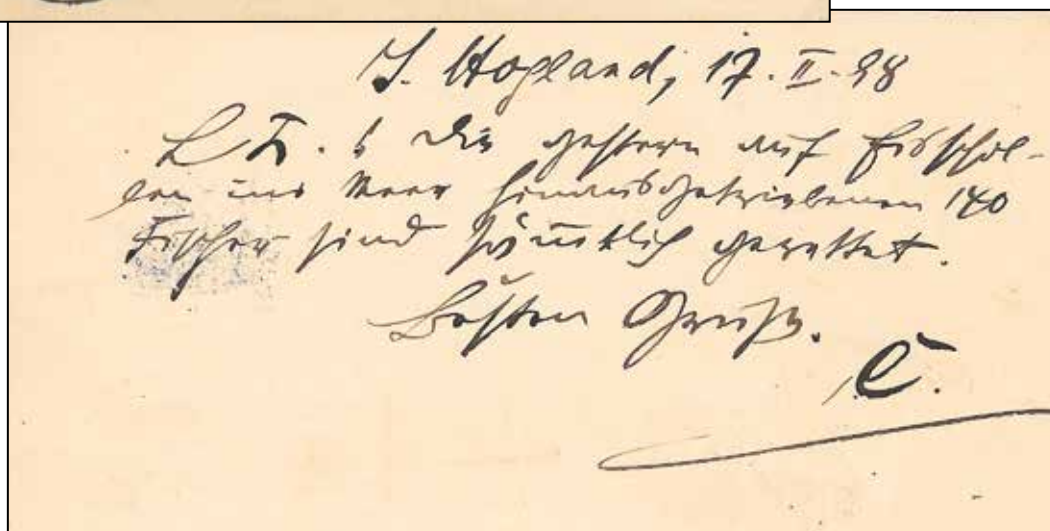 J. Hogland, 17. II. 98
L. T.! Die gestern auf Eisschol-
len ins Meer hinausgetriebenen 140
Fischer sind sämtlich gerettet.
Besten Gruß.
C.